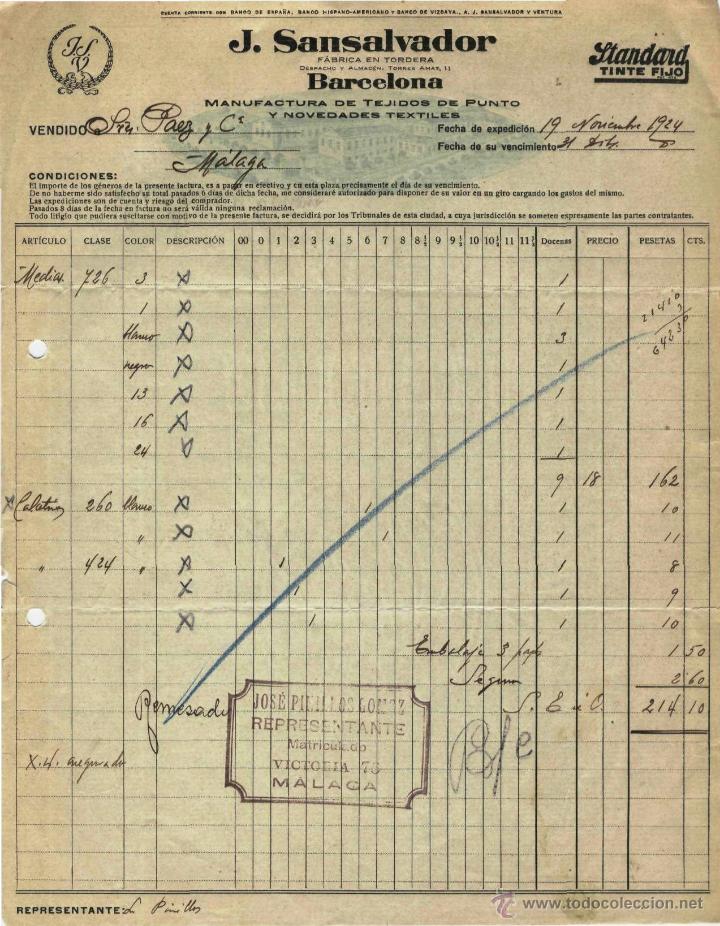 CUENTA CORRIENTE CON BANCO DE ESPAÑA, BANCO HISPANO-AMERICANO Y BANCO DE VIZCAYA., A. J. SANSALVADOR Y VENTURA
JSV
J. Sansalvador
FÁBRICA EN TORDERA
DESPACHO Y ALMACÉN, TORRES AMAT, 11
Barcelona
Standard
TINTE FIJO
MANUFACTURA DE TEJIDOS DE PUNTO
Y NOVEDADES TEXTILES
VENDIDO Sres. Paez y Cª
Málaga
Fecha de expedición 19 Noviembre 1924
Fecha de su vencimiento 31
CONDICIONES:
El importe de los géneros de la presente factura, es a pagar en efectivo y en esta plaza precisamente el día de su vencimiento.
De no haberme sido satisfecho su total pasados 6 días de dicha fecha, me consideraré autorizado para disponer de su valor en un giro cargando los gastos del mismo.
Las expediciones son de cuenta y riesgo del comprador.
Pasados 8 días de la fecha en factura no será válida ninguna reclamación.
Todo litigio que pudiera suscitarse con motivo de la presente factura, se decidirá por los Tribunales de esta ciudad, a cuya jurisdicción se someten expresamente las partes contratantes.
ARTÍCULO CLASE COLOR DESCRIPCIÓN 00 0 1 2 3 4 5 6 7 8 8½ 9 9½ 10 10½ 11 11½ Docenas PRECIO PESETAS CTS.
Medias 726 3 X 1
1 X 1
21410
3
64230
blanco X 3
negro X 1
13 X 1
16 X 1
24 X 1
9 18 162
X Calcetines 260 blanco X 1 1 10
" X 1 1 11
" 424 " X 1 1 8
X 1 1 9
X 1 1 10
Embalaje 3 1 50
Seguro 2 60
S. E. ú O. 214 10
Remesado
JOSÉ PINILLOS GOMEZ
REPRESENTANTE
Matriculado
VICTORIA 76
MÁLAGA
B/c
asegurado
REPRESENTANTE: Pinillos
todocoleccion.net